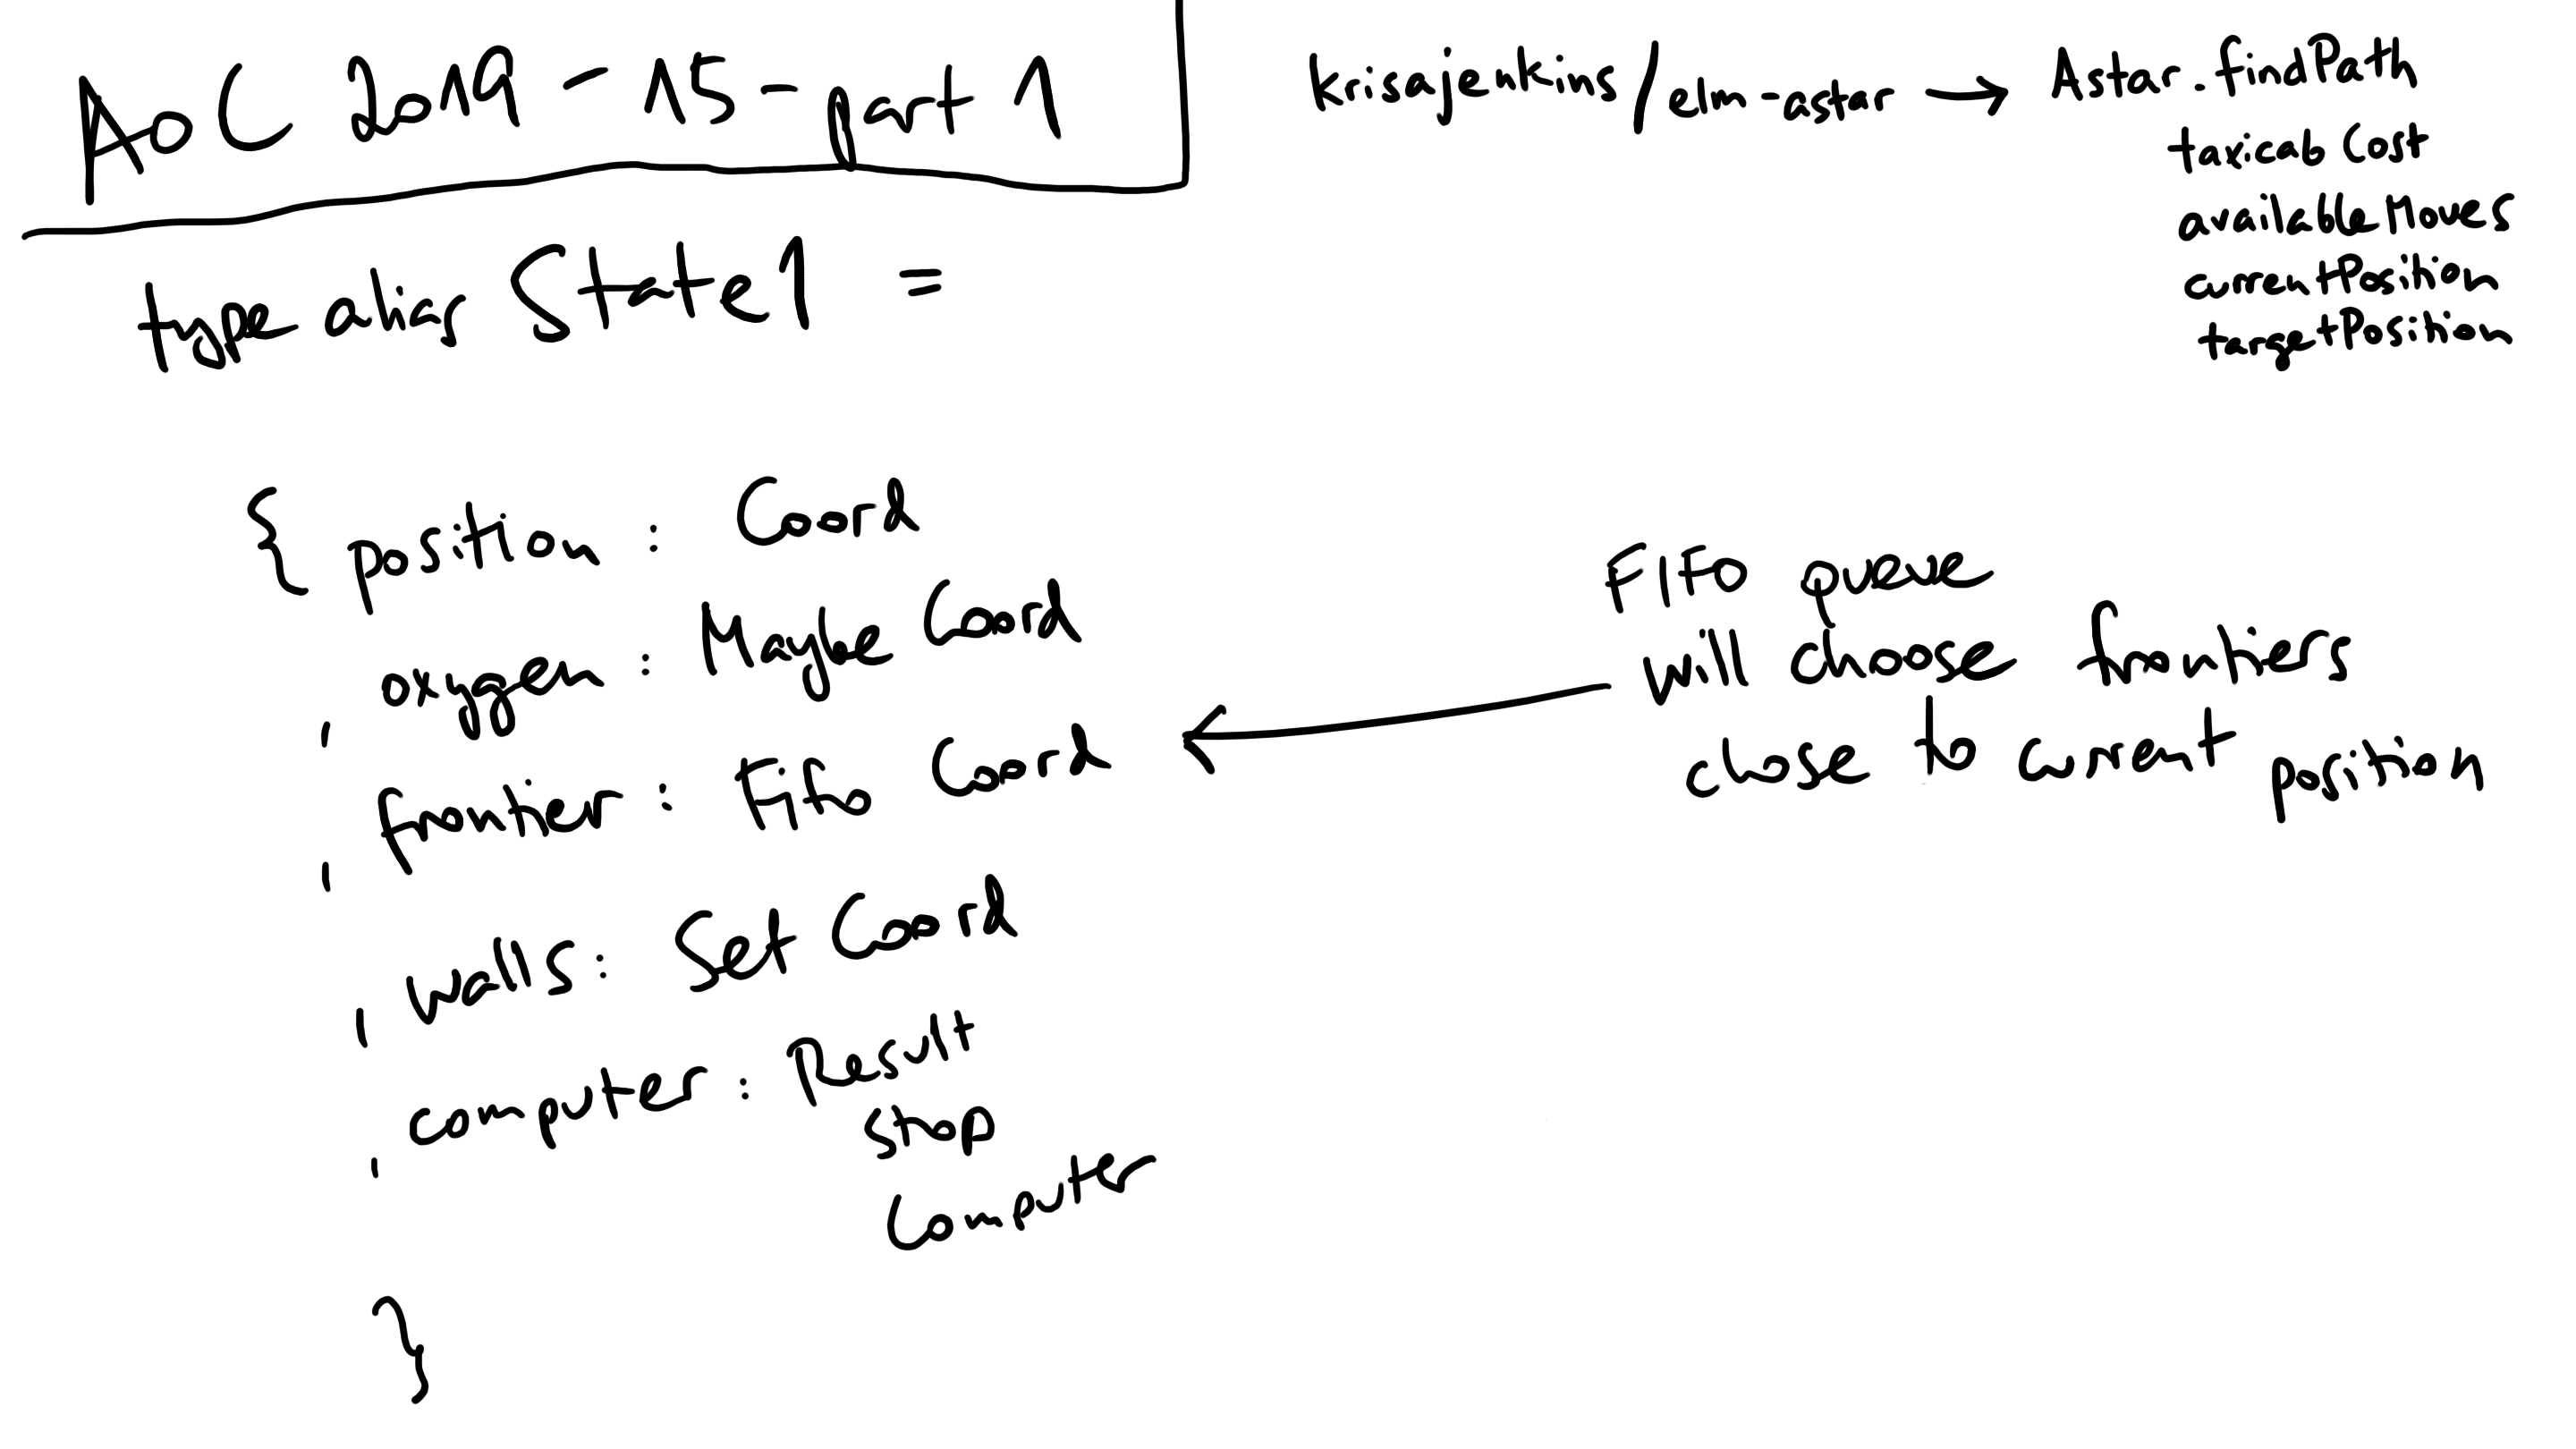 AoC 2019 - 15 - part 1
krisajenkins/elm-astar → Astar.findPath
taxicabCost
availableMoves
currentPosition
targetPosition
type alias State1 =
{ position : Coord
, oxygen : Maybe Coord
, frontier : Fifo Coord
, walls : Set Coord
, computer : Result
Stop
Computer
}
FIFO queue
will choose frontiers
close to current position